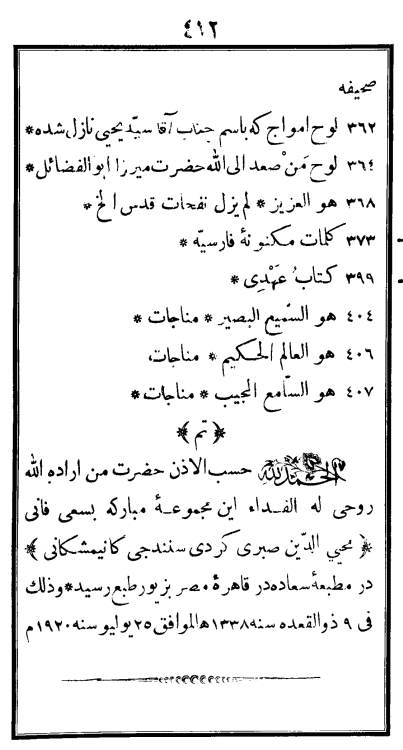 ٤١٢
صحيفه
٣٦٢ لوح امواج كه باسم جناب آقا سيّد يحيى نازل شده *
٣٦٤ لوح مَنْ صعد الى الله حضرت ميرزا ابوالفضائل *
٣٦٨ هو العزيز * لم يزل نفحات قدس الخ *
٣٧٣ كلمات مكنونهٔ فارسيّه *
٣٩٩ كتابُ عَهْدِى *
٤٠٤ هو السّميع البصير * مناجات *
٤٠٦ هو العالم الحكيم * مناجات
٤٠٧ هو السّامع المجيب * مناجات *
﴿ تم ﴾
الحمد لله حسب الاذن حضرت من اراده الله
روحى له الفداء اين مجموعهٔ مباركه بسعى فانى
﴿ محيي الدّين صبرى كردى سنندجى كانيمشكانى ﴾
در مطبعهٔ سعاده در قاهرهٔ مصر بزيور طبع رسيد * وذلك
فى ٩ ذوالقعده سنه ١٣٣٨ه‍ الموافق ٢٥ يوليو سنه ١٩٢٠م